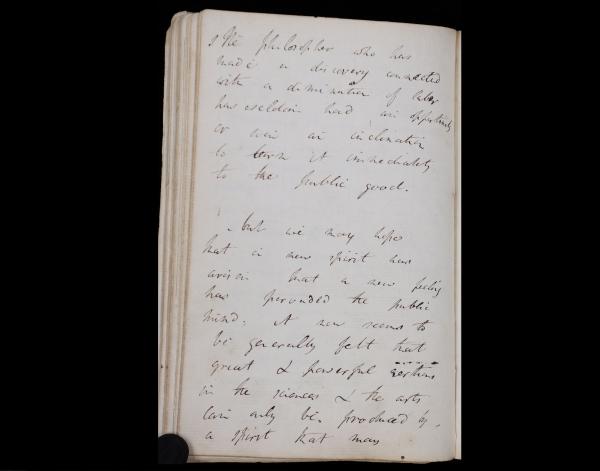 The philosopher who has
made a discovery connected
with a diminution of labor
has seldom had an opportunity
or even an inclination
to turn it immediately
to the public good.
but we may hope
that a new spirit has
arisen that a new feeling
has pervaded the public
mind. it now seems to
be generally felt that
great & powerful exertions
in the sciences & the arts
can only be produced by
a spirit that may